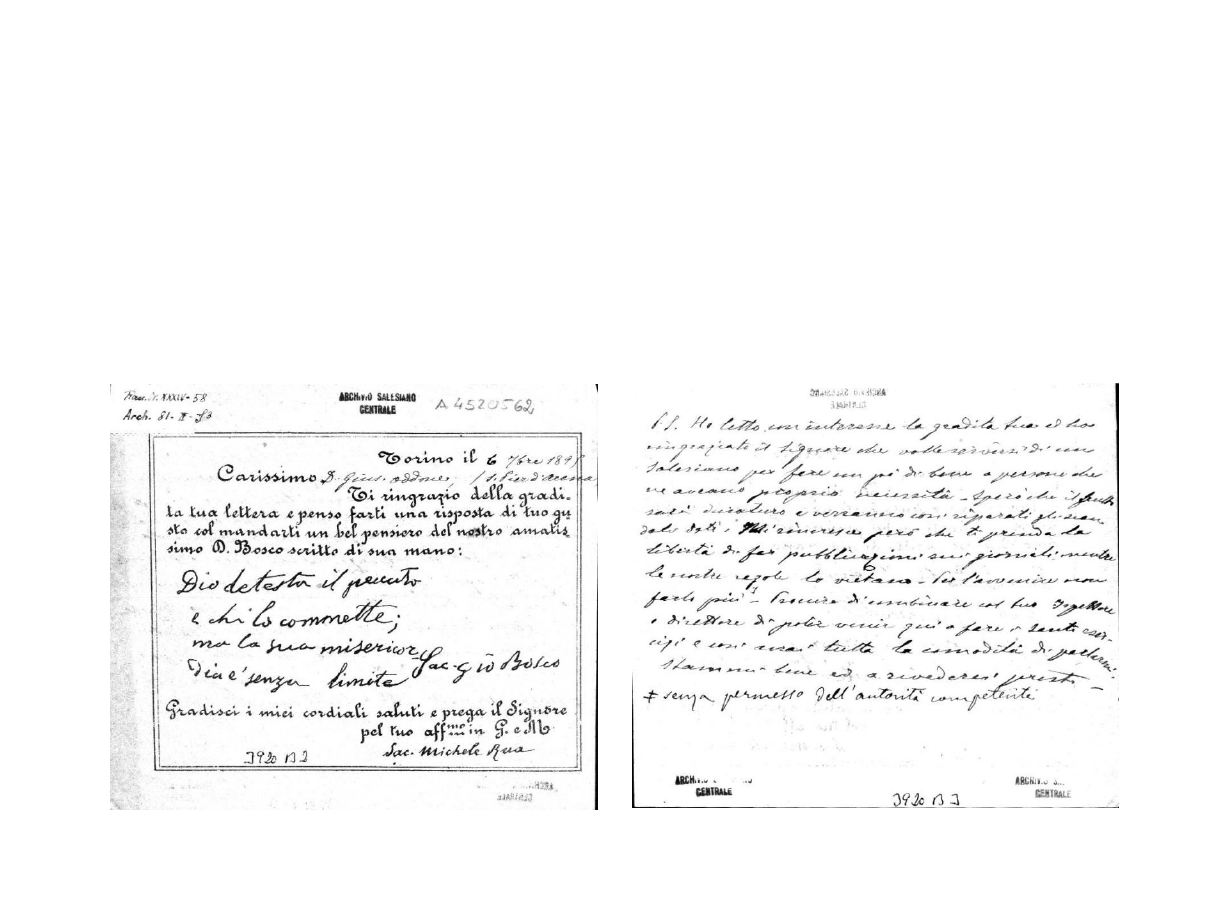 XXXIV-58
Arch. 81-II-53
ARCHIVIO SALESIANO
CENTRALE
A4520562
Torino il 6 7bre 189
Carissimo D. Gius. Oddone, S. Pier d'Arena
Ti ringrazio della gradi-
ta tua lettera e penso farti una risposta di tuo gu
sto col mandarti un bel pensiero del nostro amatis
simo D. Bosco scritto di sua mano:
Dio detesta il peccato
e chi lo commette;
ma la sua misericor
dia é senza limite
Sac. Gio Bosco
Gradisci i miei cordiali saluti e prega il Signore
pel tuo aff.mo in G. e M.
Sac. Michele Rua
3920 B 2
P.S. Ho letto con interesse la gradita tua ed ho
ringraziato il Signore che volle servirsi di un
Salesiano per fare un pó di bene a persone che
ne aveano proprio necessità - Spero che il frutto
sarà duraturo e verranno così riparati gli scan
dali dati. Mi rincresce però che ti prenda la
libertà di far pubblicazioni sui giornali mentre
le nostre regole lo vietano ‡ Per l'avvenire non
farlo più - Procura di combinare col tuo Ispettore
e direttore di poter venir qui a fare i santi eser-
cizi e così avrai tutta la comodità di parlarmi.
Stammi bene ed a rivederci presto -
‡ senza permesso dell'autorità competente
CENTRALE
CENTRALE
3920 B 3